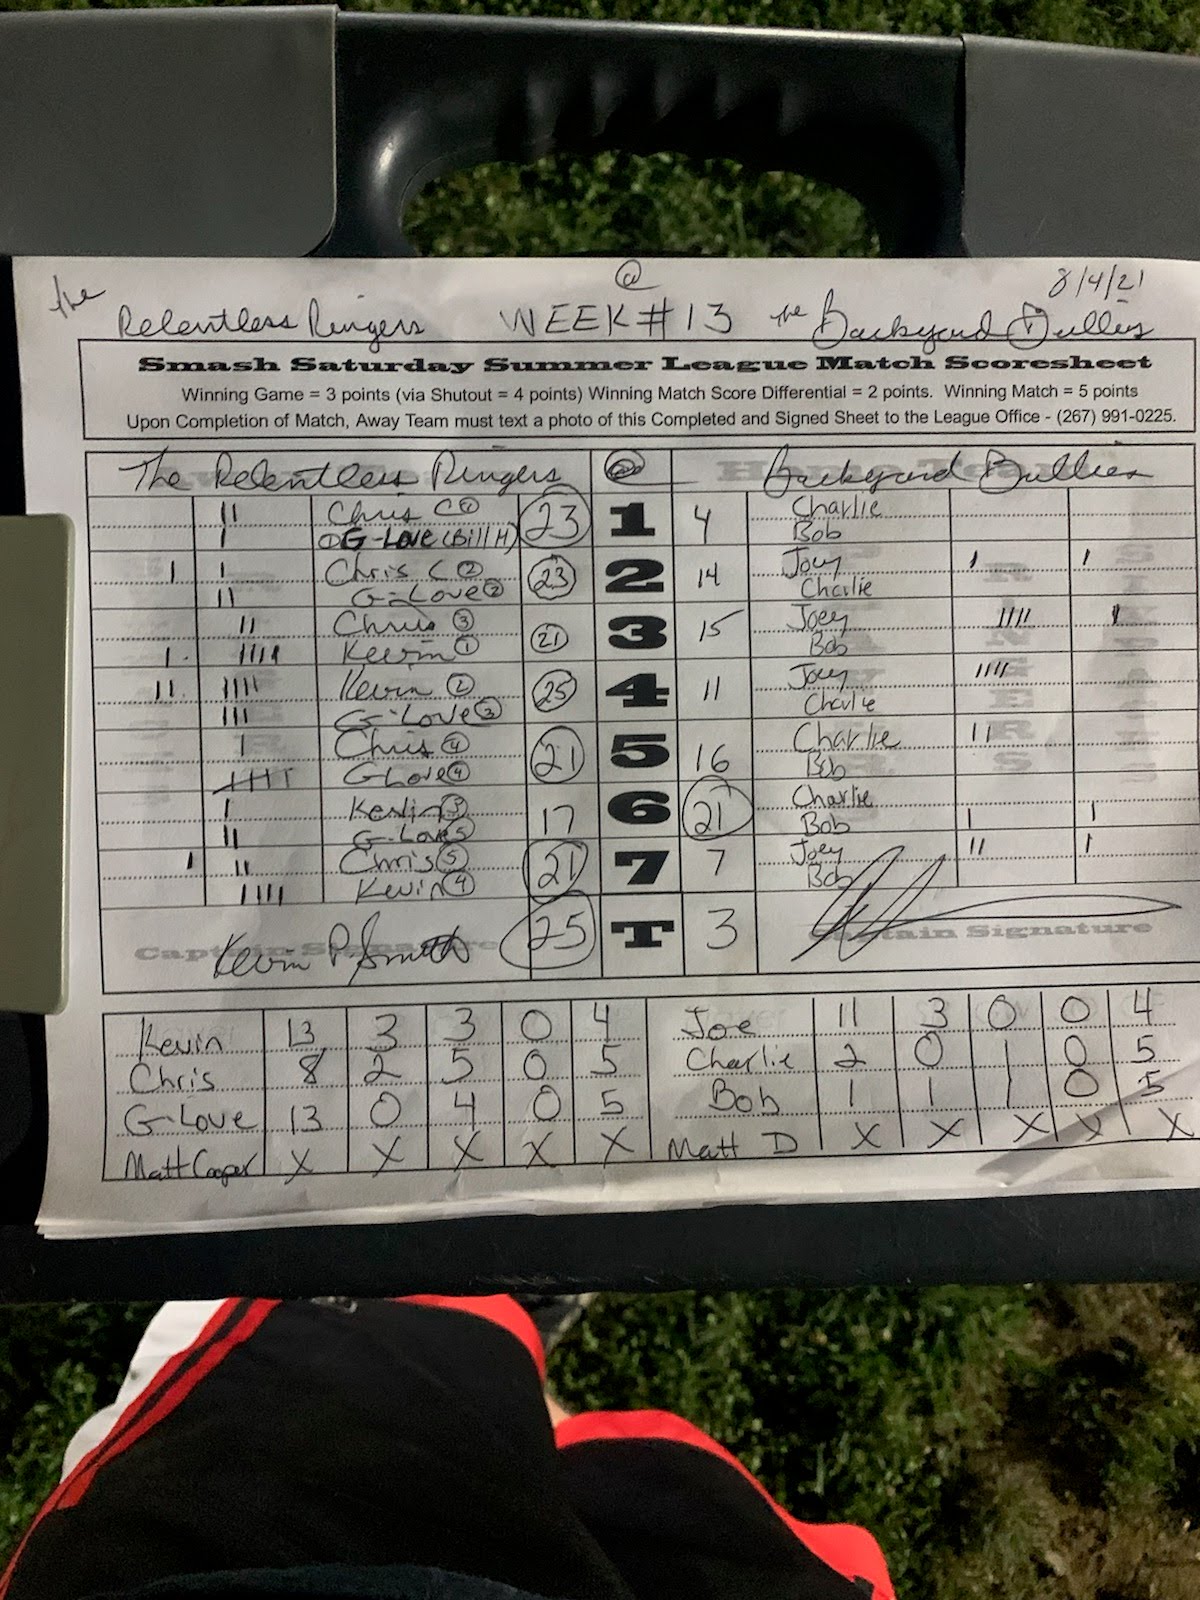 @
8/4/21
The Relentless Ringers WEEK #13 The Backyard Bullies
Smash Saturday Summer League Match Scoresheet
Winning Game = 3 points (via Shutout = 4 points) Winning Match Score Differential = 2 points. Winning Match = 5 points
Upon Completion of Match, Away Team must text a photo of this Completed and Signed Sheet to the League Office - (267) 991-0225.
The Relentless Ringers @ Backyard Bullies
Chris C 1 23 1 4 Charlie
1 G-Love (Bill H) Bob
Chris C 2 23 2 14 Joey
G-Love 2 Charlie
Chris 3 21 3 15 Joey
Kevin 1 Bob
Kevin 2 25 4 11 Joey
G-Love 3 Charlie
Chris 4 21 5 16 Charlie
G Love 4 Bob
Kevin 3 17 6 21 Charlie
G-Love 5 Bob
Chris 5 21 7 7 Joey
Kevin 4 Bob
Kevin P Smith 25 T 3
Captain Signature Captain Signature
Kevin 13 3 3 0 4 Joe 11 3 0 0 4
Chris 8 2 5 0 5 Charlie 2 0 1 0 5
G-Love 13 0 4 0 5 Bob 1 1 1 0 5
Matt Cooper X X X X X Matt D X X X X X